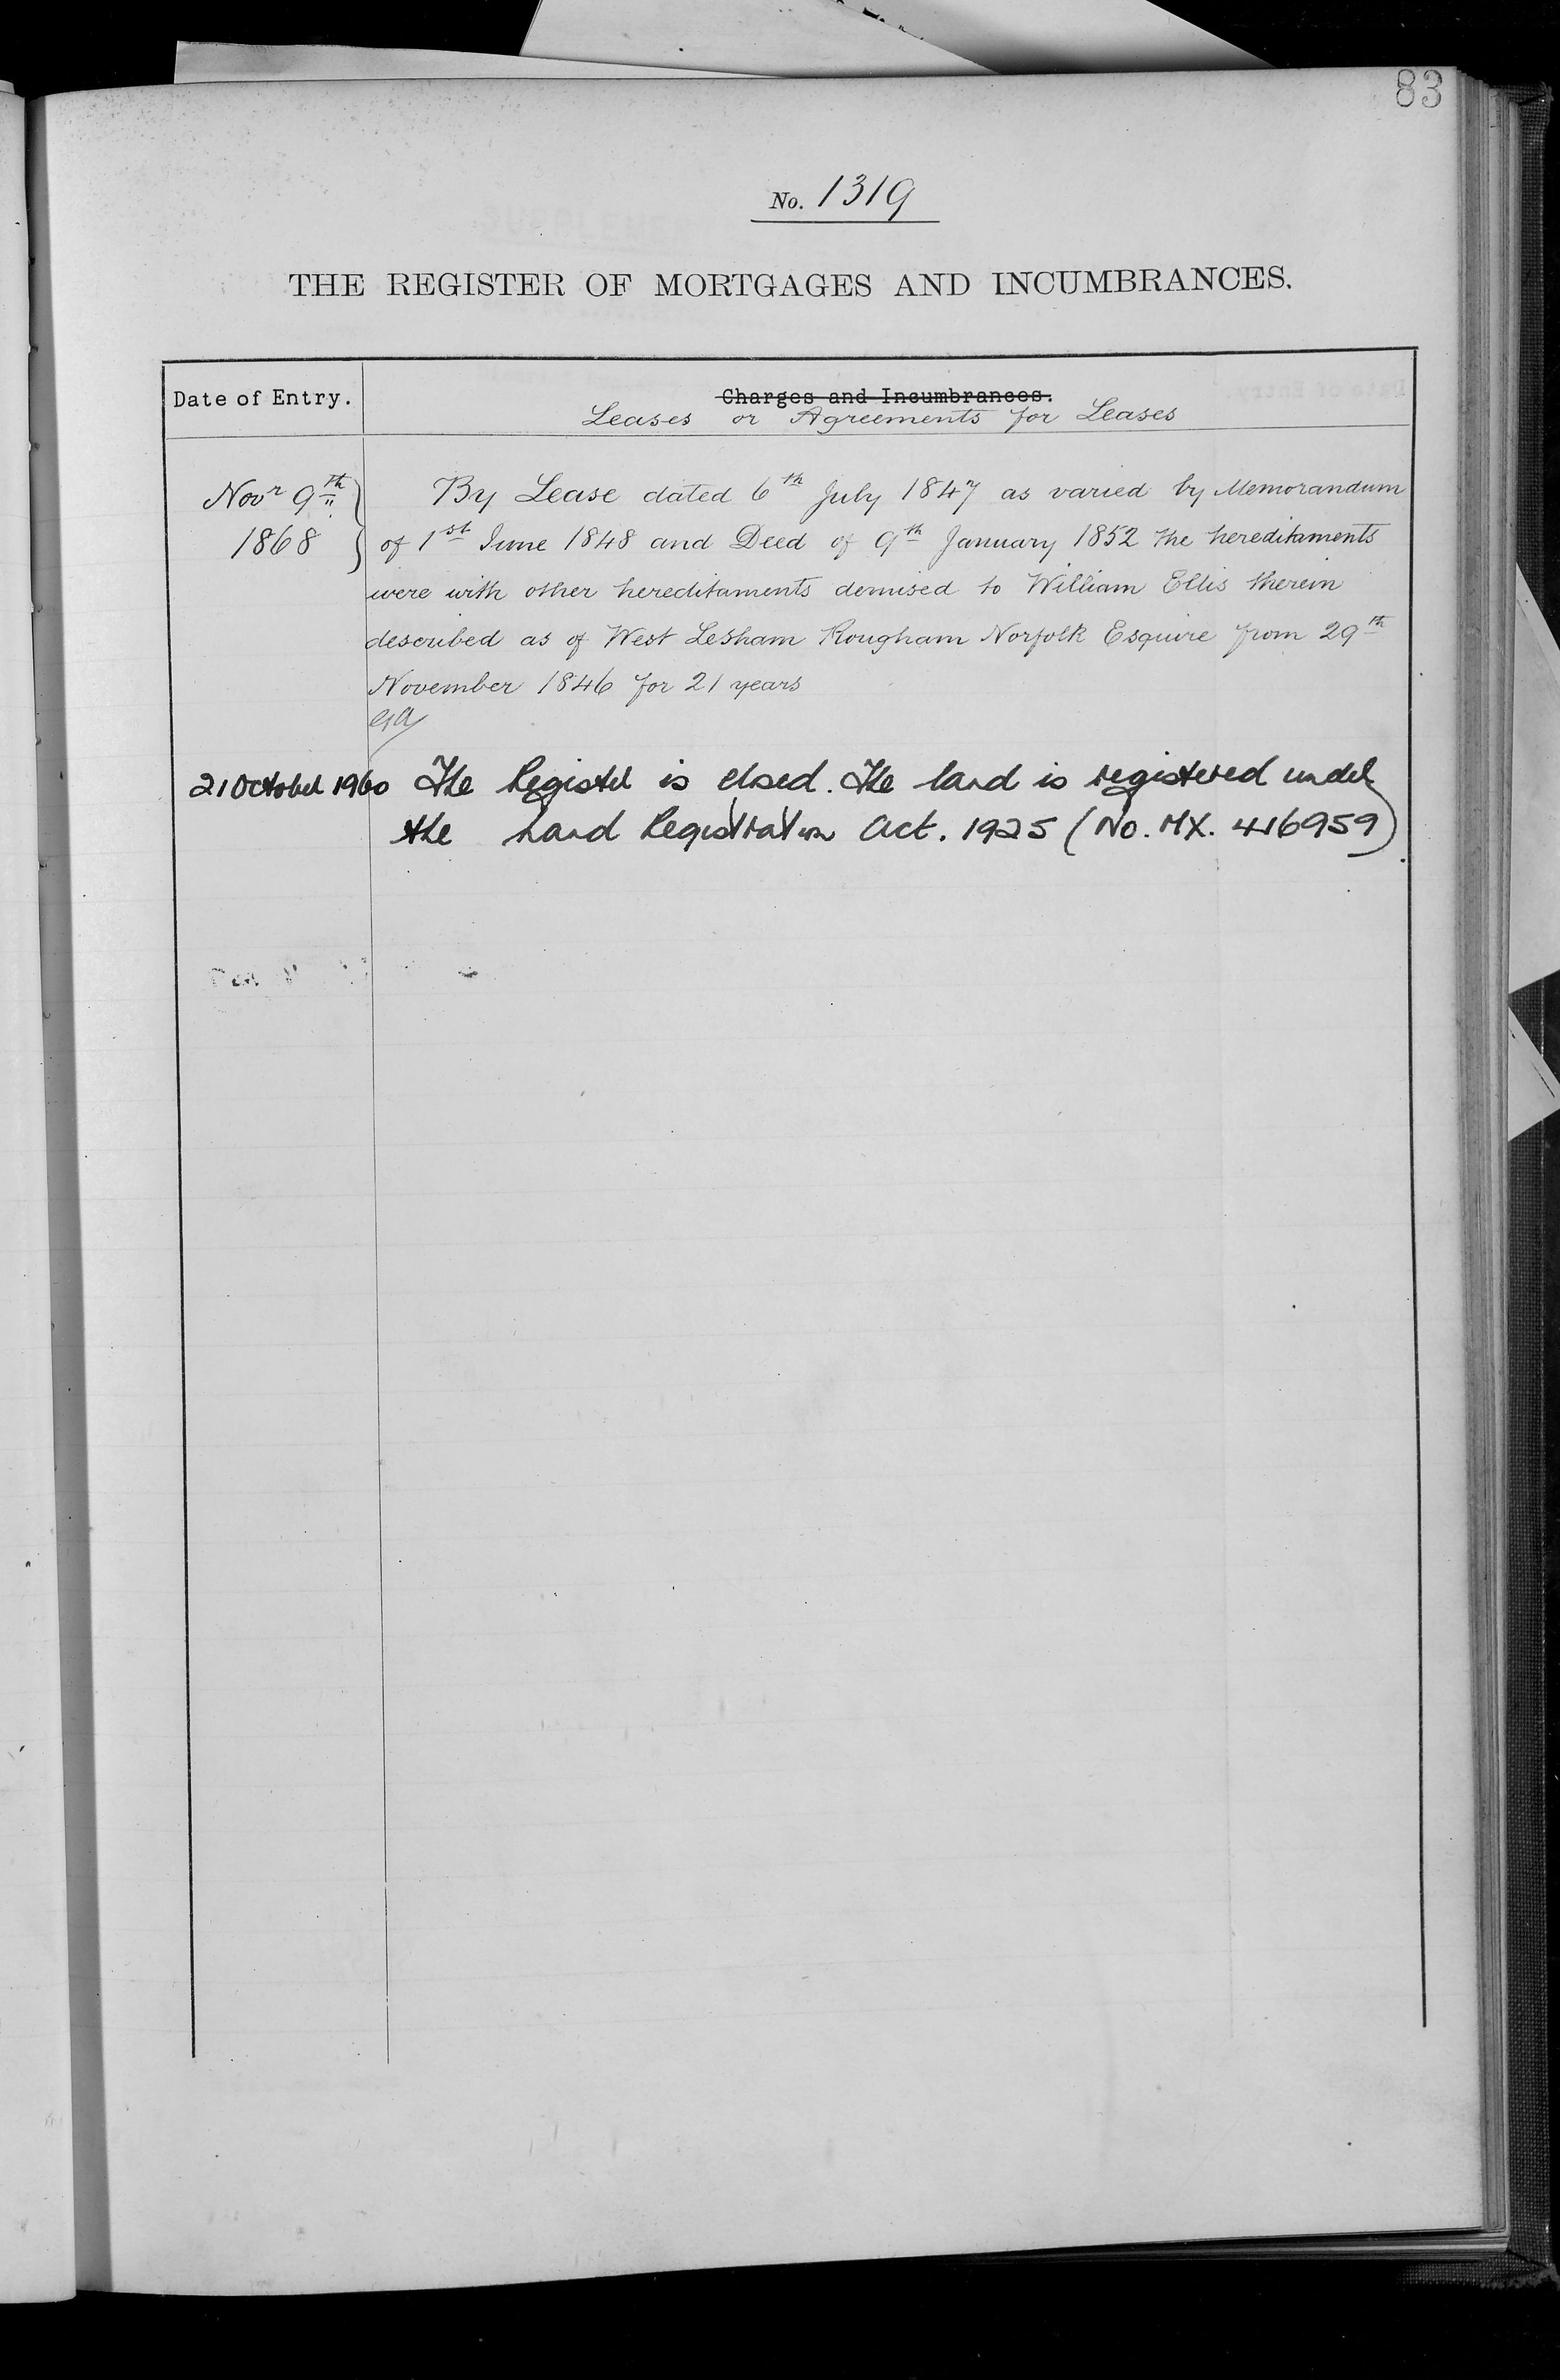 83
No. 1319
THE REGISTER OF MORTGAGES AND INCUMBRANCES.
Date of Entry.
Charges and Incumbrances.
Leases or Agreements for Leases
Novr 9th
1868
By Lease dated 6th July 1847 as varied by Memorandum
of 1st June 1848 and Deed of 9th January 1852 the hereditaments
were with other hereditaments demised to William Ellis therein
described as of West Lesham Rougham Norfolk Esquire from 29th
November 1846 for 21 years
21 October 1960 The Register is closed. The land is registered under
the Land Registration Act. 1925 (No. MX. 416959)